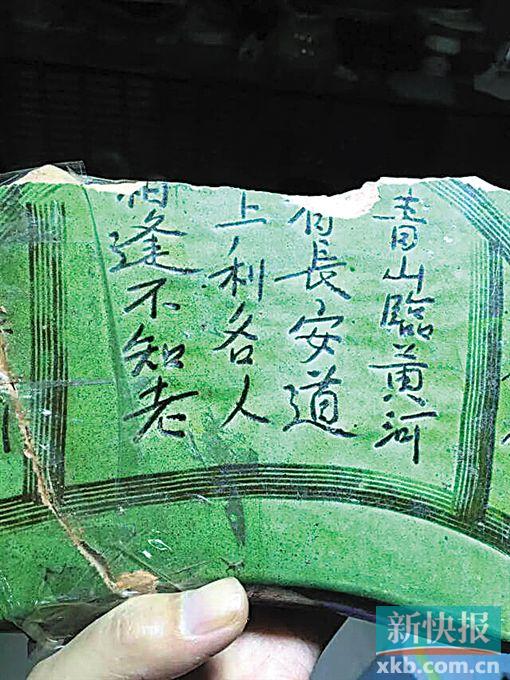 青山臨黃河
有長安道
上利各人
相逢不知老
新快报
xkb.com.cn